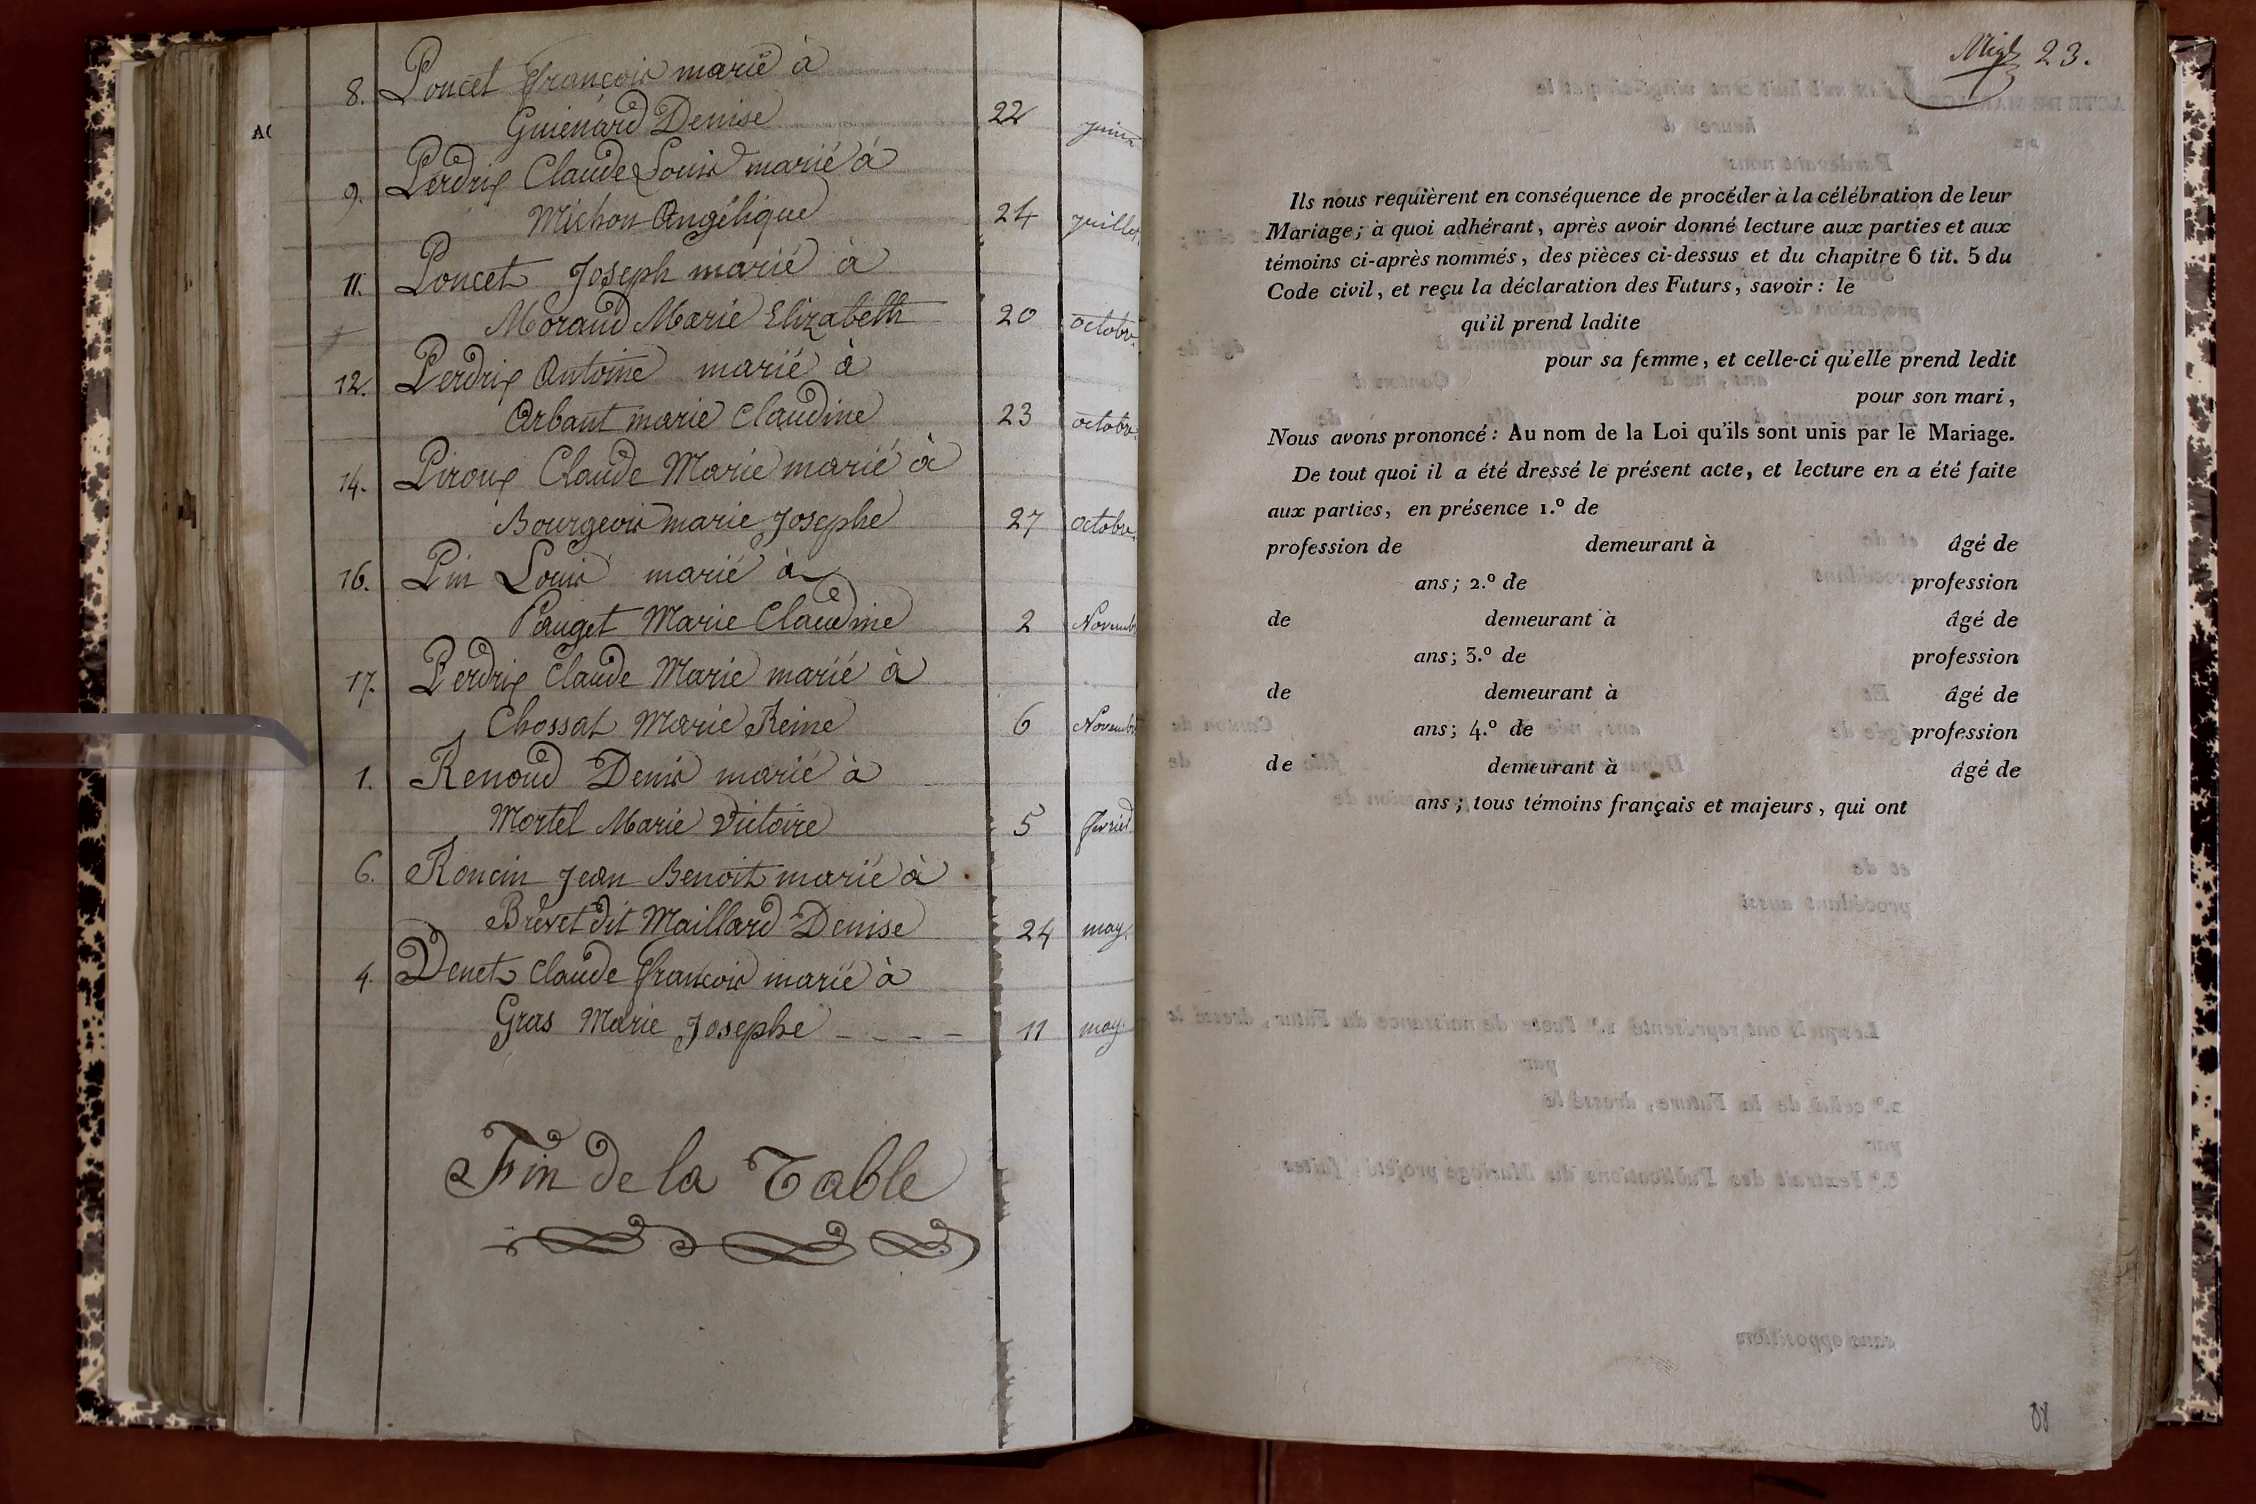 8. Poncet françois marié à
Guienard Denise 22 juin
9. Perdrix Claude Louis marié à
Michon Angélique 24 juillet
11. Poncet Joseph marié à
Morand Marie Elizabeth 20 octobre
12. Perdrix Antoine marié à
Arbant marie Claudine 23 octobre
14. Piroux Claude Marie marié à
Bourgeois marie Josephe 27 octobre
16. Pin Louis marié à
Pauget Marie Claudine 2 Novemb
17. Perdrix Claude Marie marié à
Chossat Marie Reine 6 Novemb
1. Renoud Denis marié à
Mortel Marie Victoire 5 fevrier
6. Roncin Jean Benoit marié à
Brevet dit Maillard Denise 24 may
4. Venet Claude françois marié à
Gras Marie Josephe 11 may
Fin de la Table
23.
Ils nous requièrent en conséquence de procéder à la célébration de leur
Mariage; à quoi adhérant, après avoir donné lecture aux parties et aux
témoins ci-après nommés, des pièces ci-dessus et du chapitre 6 tit. 5 du
Code civil, et reçu la déclaration des Futurs, savoir: le
qu'il prend ladite
pour sa femme, et celle-ci qu'elle prend ledit
pour son mari,
Nous avons prononcé: Au nom de la Loi qu'ils sont unis par le Mariage.
De tout quoi il a été dressé le présent acte, et lecture en a été faite
aux parties, en présence 1.º de
profession de demeurant à âgé de
ans; 2.º de profession
de demeurant à âgé de
ans; 3.º de profession
de demeurant à âgé de
ans; 4.º de profession
de demeurant à âgé de
ans; tous témoins français et majeurs, qui ont